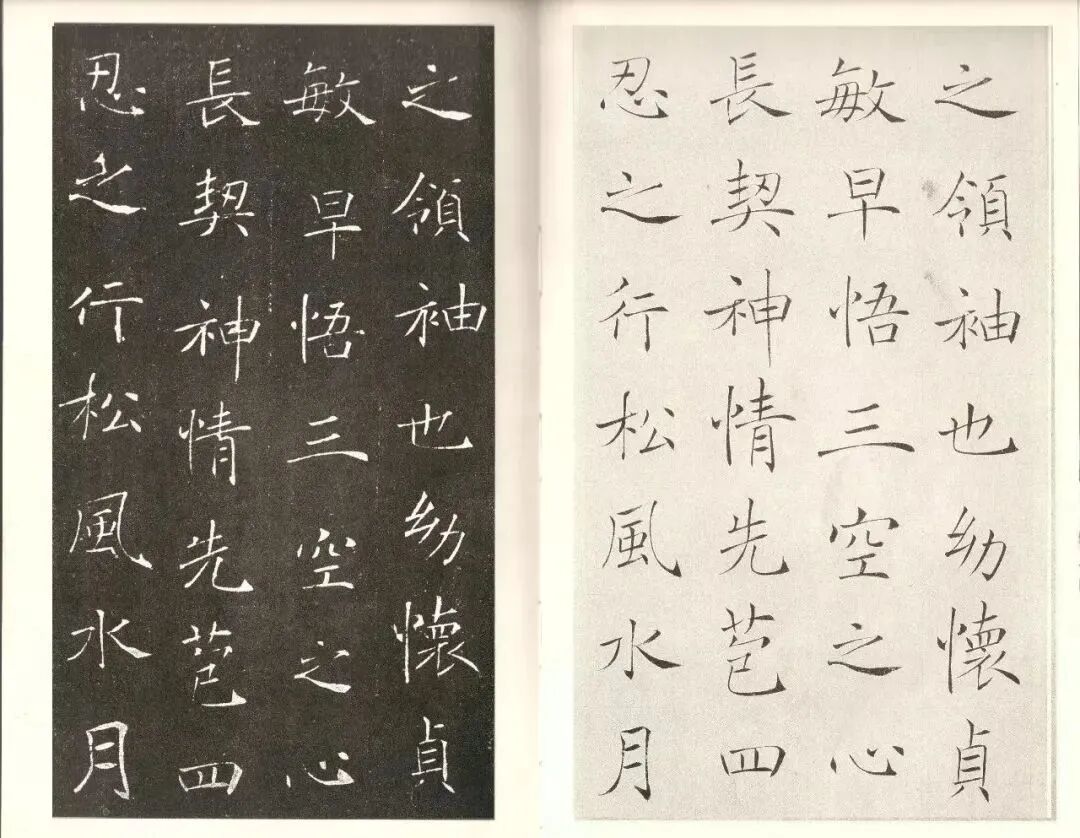 之領袖也幼懷貞
敏早悟三空之心
長契神情先苞四
忍之行松風水月
之領袖也幼懷貞
敏早悟三空之心
長契神情先苞四
忍之行松風水月